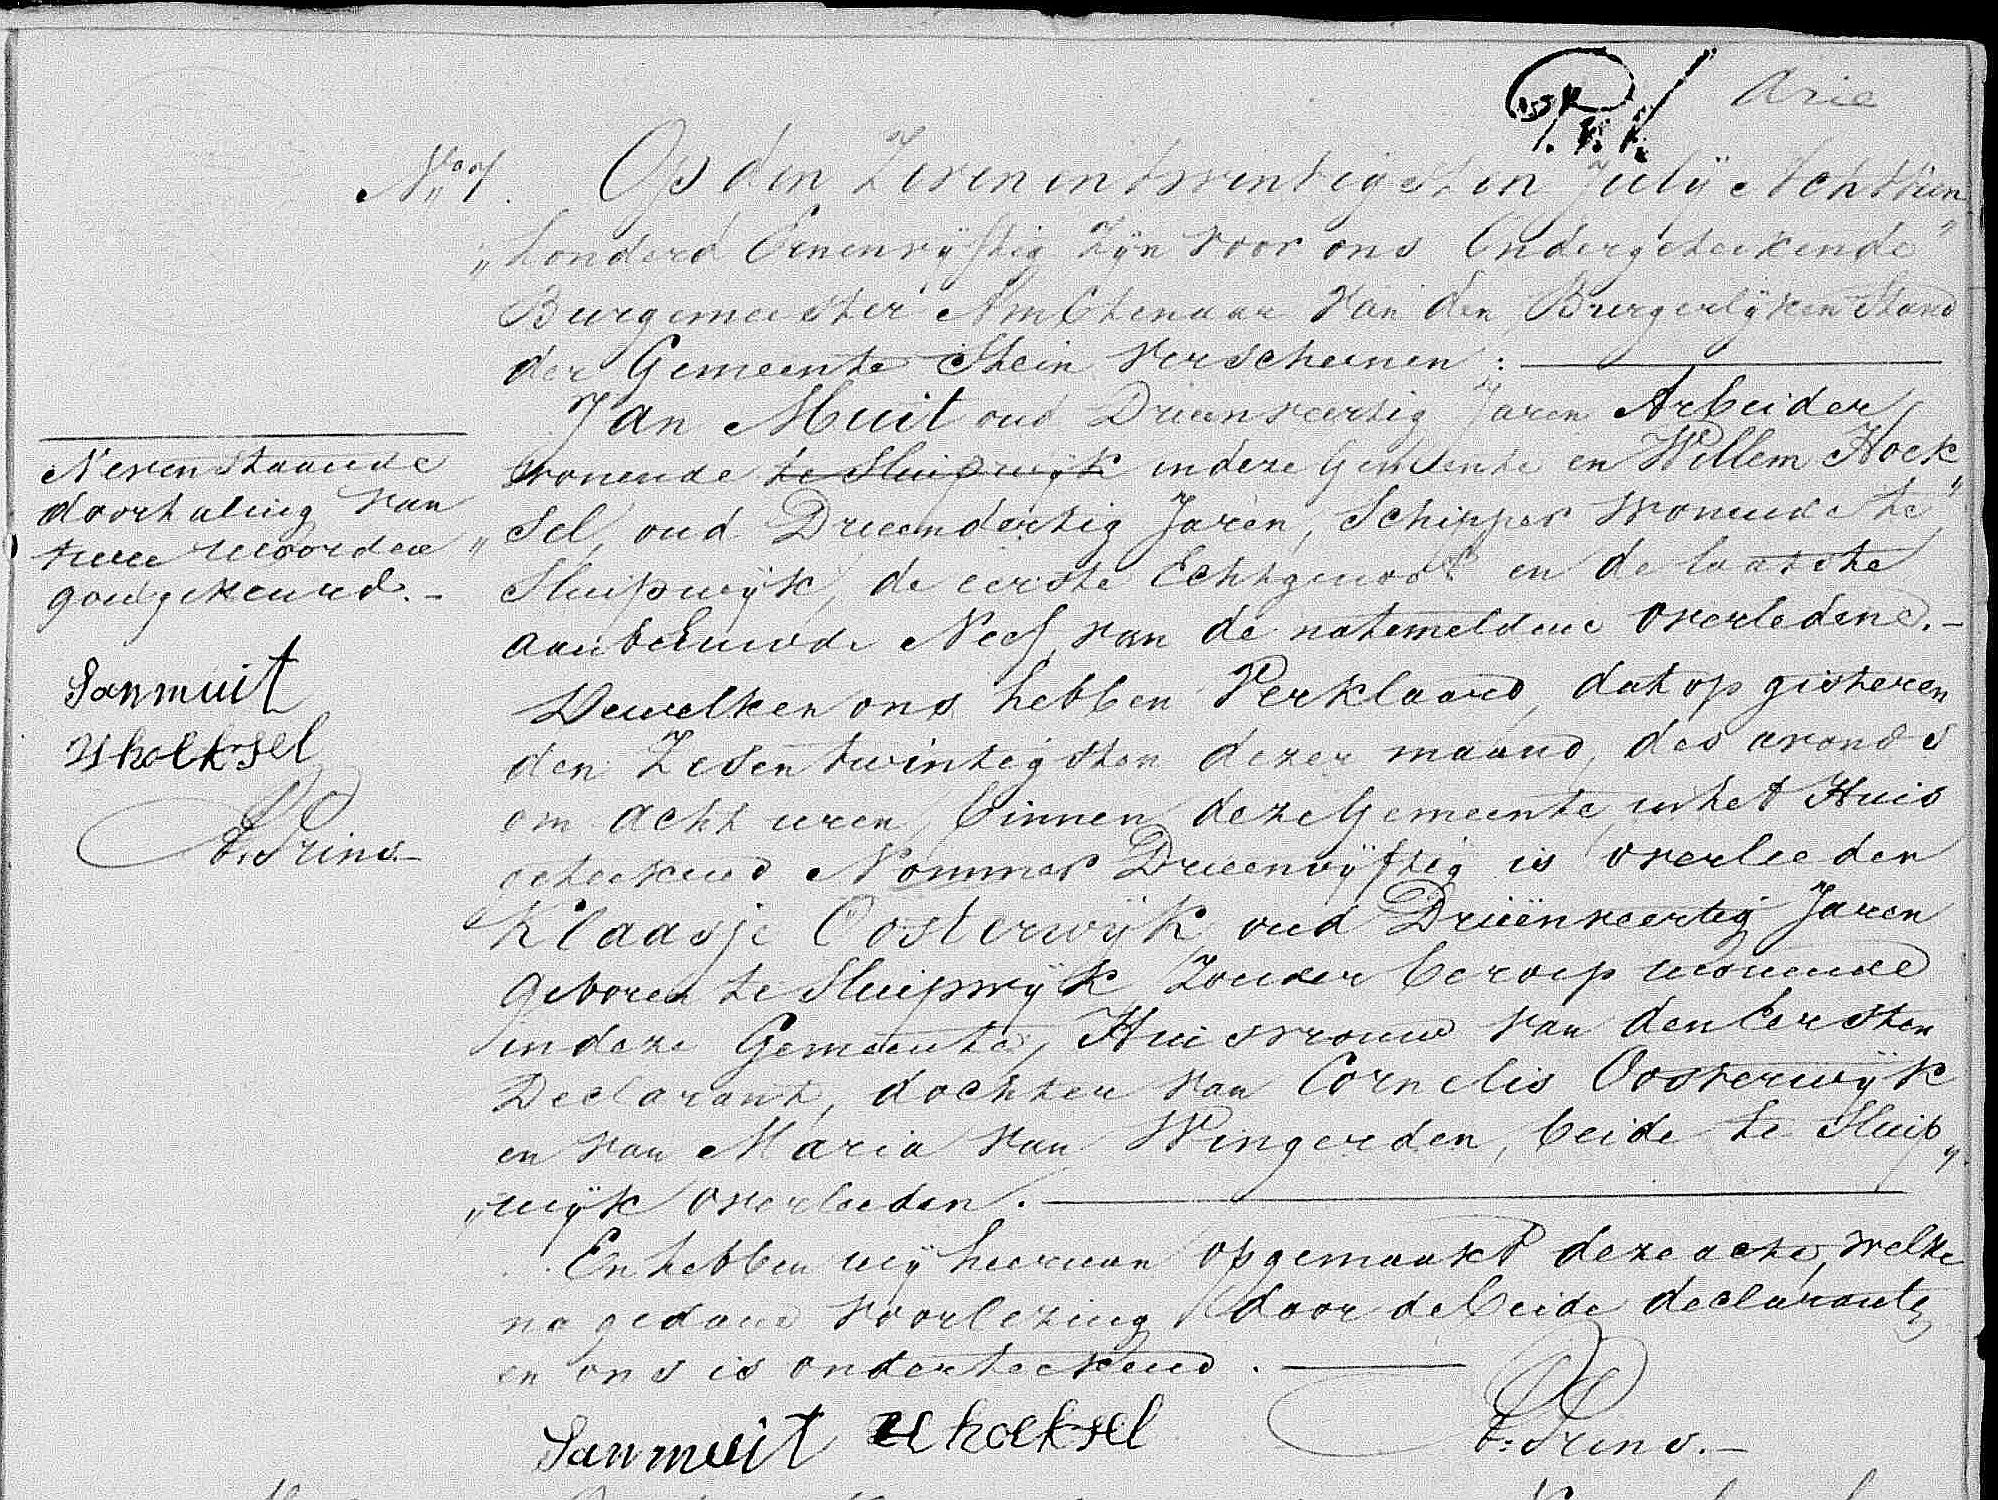 Arie
No 7. Op den Zeven en twintigsten July Achttien"
"honderd Eenenvyftig zyn voor ons Ondergeteekende
Burgemeester Ambtenaar van den Burgerlyken Stand
der Gemeente Stein verschenen :
Jan Muit oud Drieenveertig Jaren Arbeider
wonende te Sluipwyk in deze Gemeente en Willem Hoek"
"sel, oud Drieendertig Jaren, Schipper wonende te
Sluipwyk, de eerste Echtgenoot en de laatste
aanbehuwde Neef van de natemeldene overledene.-
Dewelken ons hebben Verklaard, dat op gisteren
den Zesentwintigsten dezer maand, des avonds
om acht uren, binnen deze Gemeente, in het Huis
geteekend Nommer Drieenvyftig is overleeden
Klaasje Oosterwyk, oud Drieënveertig Jaren
geboren te Sluipwyk, zonder beroep wonende
in deze Gemeente, Huisvrouw van den Eersten
Declarant, dochter van Cornelis Oosterwyk
en van Maria van Wingerden, beide te Sluip"
"wyk overleeden.
En hebben wy hiervan opgemaakt deze acte, welke
na gedane voorlezing door de beide declaranten
en ons is onderteekend.
Janmuit whoeksel Prins.-
Nevenstaande
doorhaling van
twee woorden
goedgekeurd.-
Janmuit
whoeksel
Prins.-